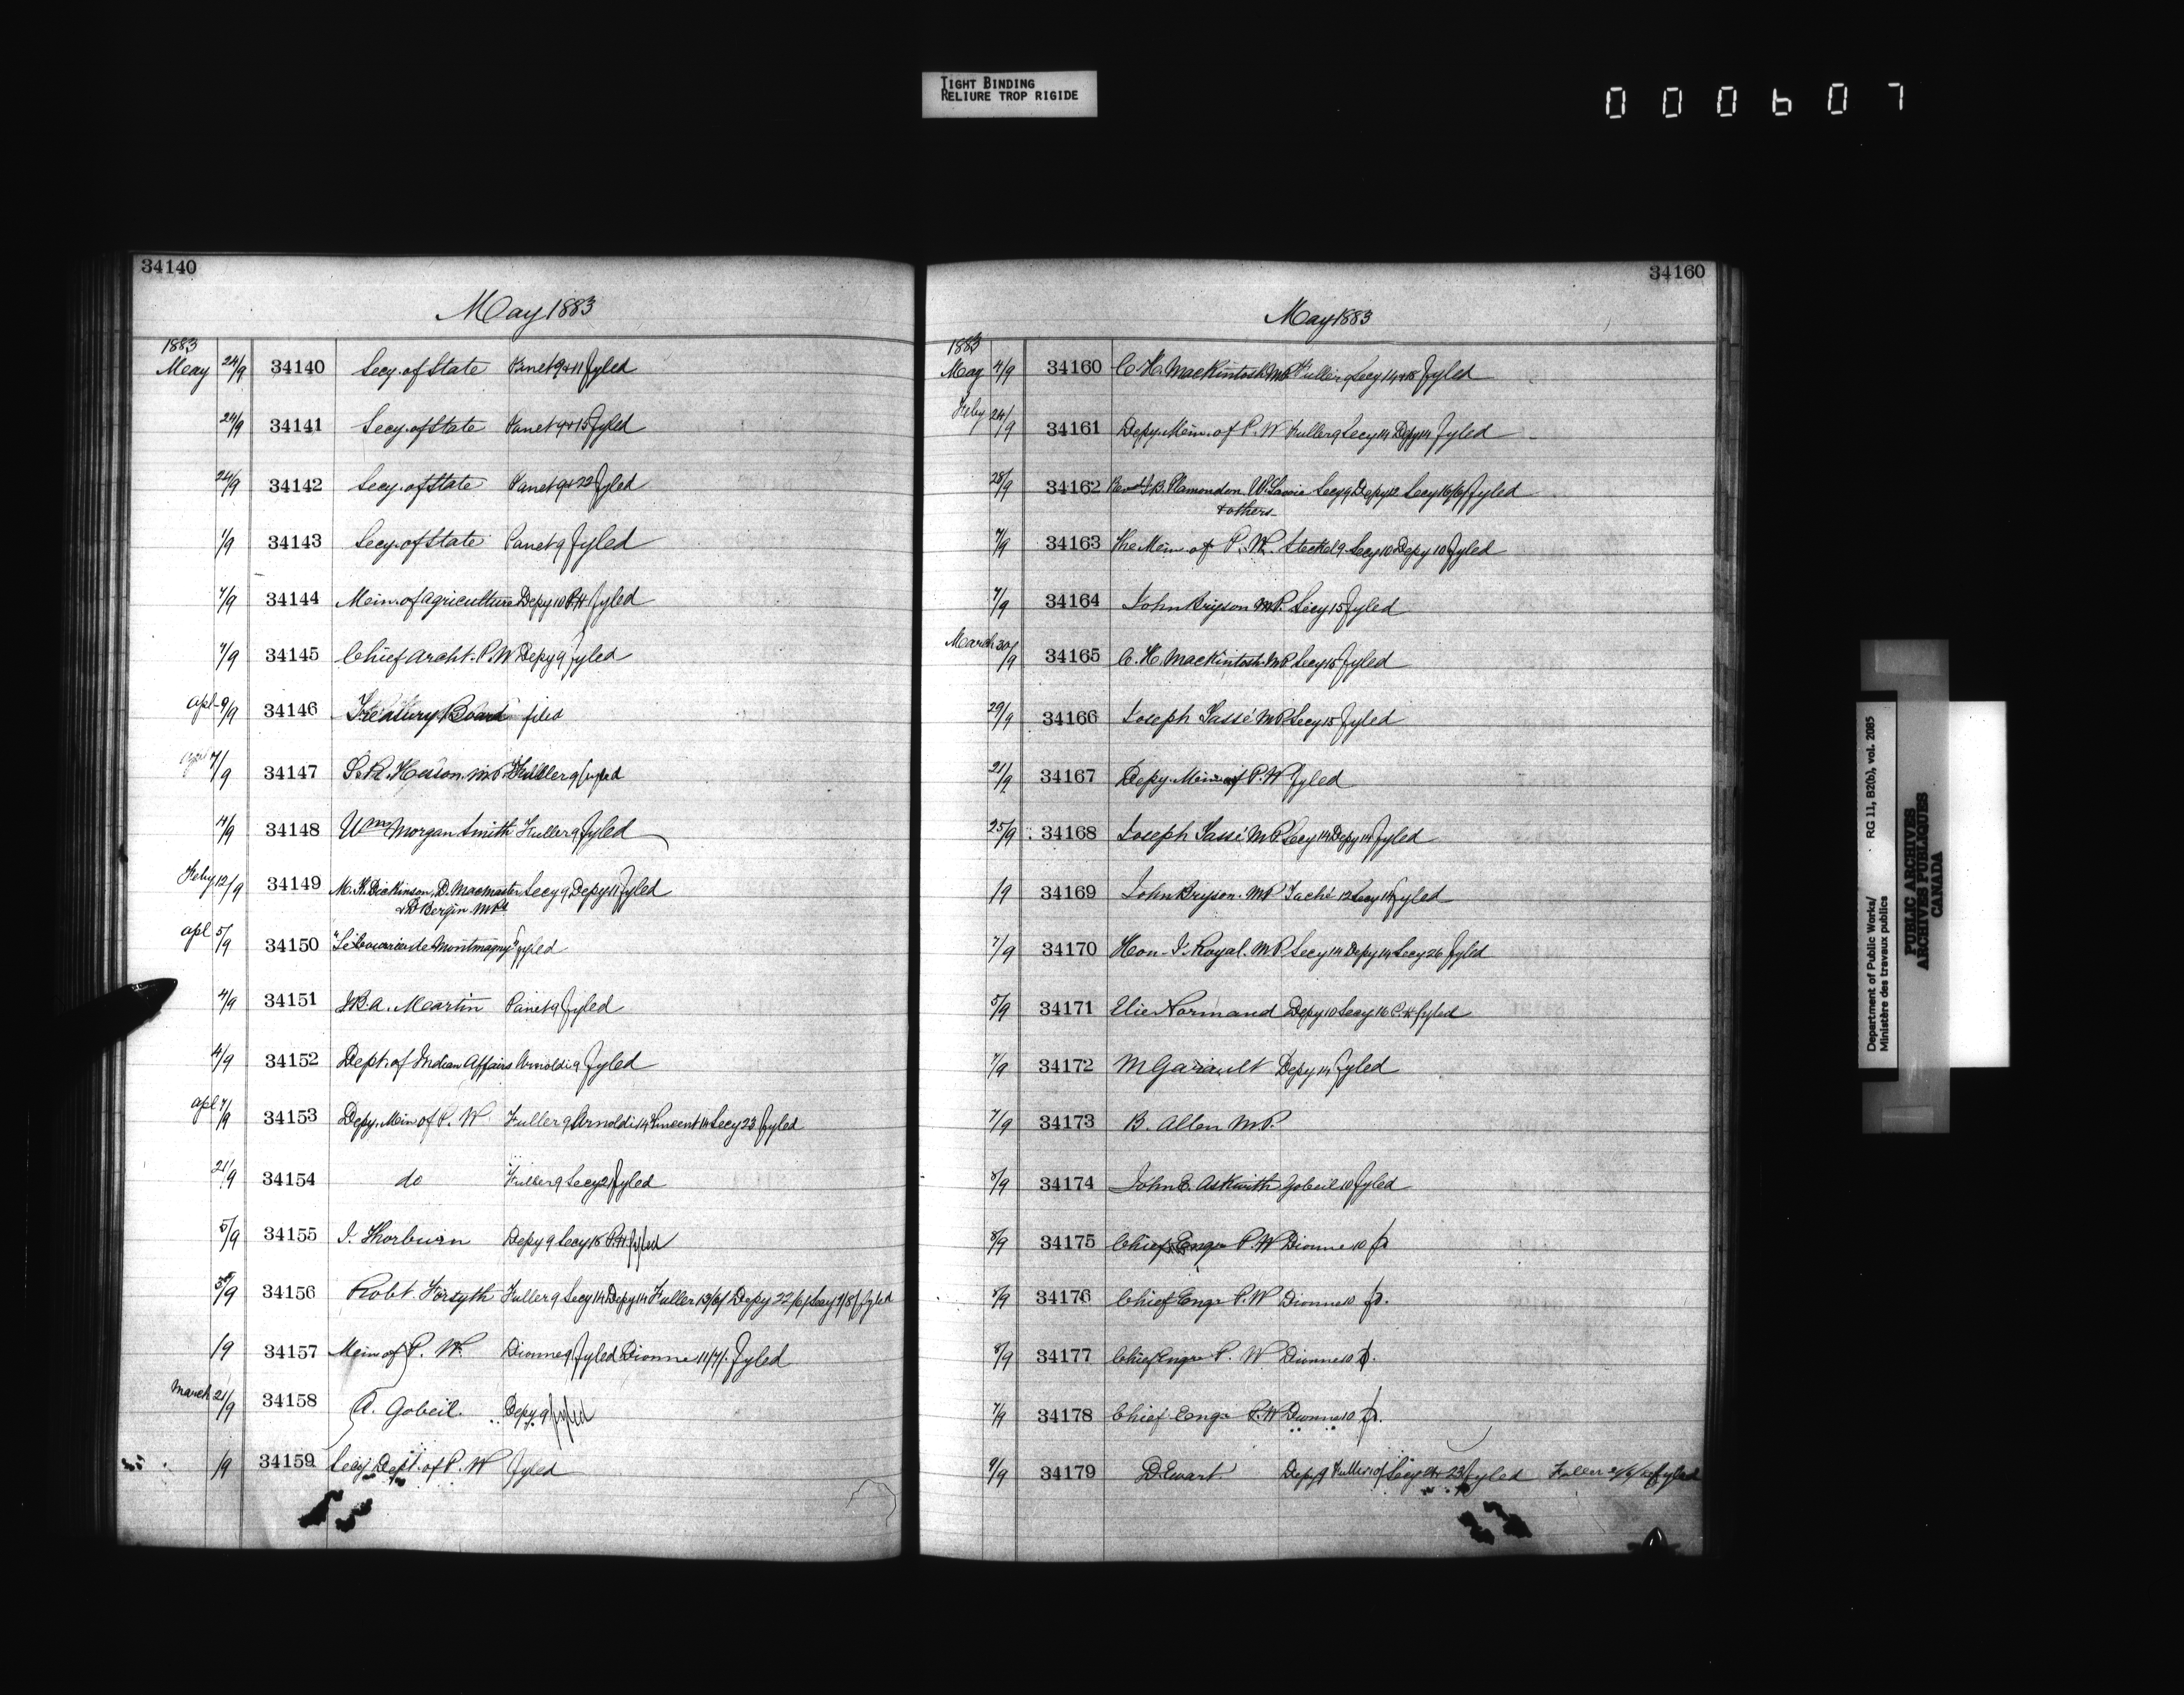 TIGHT BINDING
RELIURE TROP RIGIDE
000607
34140
May 1883
1883
May 24/9 34140 Secy. of State Panet 9 & 11 fyled
24/9 34141 Secy. of State Panet 9 & 15 fyled
24/9 34142 Secy. of State Panet 9 & 22 fyled
1/9 34143 Secy. of State Panet 9 fyled
7/9 34144 Min. of agriculture Depy 10 fyled
7/9 34145 Chief Archt. P.W Depy 9 fyled
apl 9/9 34146 Treasury Board filed
7/9 34147 S.R. Hesson. MP Fuller 9 fyled
4/9 34148 Wm Morgan Smith Fuller 9 fyled
Feby 12/9 34149 M.K. Dickinson, D. Macmaster Secy 9, Depy 11 fyled
& D Bergin MPs
apl 5/9 34150 fyled
4/9 34151 J.B.A. Martin Panet 9 fyled
4/9 34152 Dept. of Indian Affairs Arnoldi 9 fyled
apl 7/9 34153 Depy. Min of P. W Fuller 9 Arnoldi 14 Vincent 14 Secy 23 fyled
21/9 34154 do Fuller 9 Secy 21 fyled
5/9 34155 J. Thorburn Depy 9 Secy 15 fyled
34156 Robt. Forsyth Fuller 9 Secy 14 Depy 14 Fuller 13/6/ Depy 22/6/ Secy 9/8/ fyled
/9 34157 Min of P. W. Dionne 9 fyled Dionne 11/7/. fyled
March 21/9 34158 A. Gobeil. Depy. 9 fyled
/9 34159 Secy Dept. of P. W fyled
34160
May 1883
1883
May 4/9 34160 C. H. Mackintosh MP Fuller 9 Secy 14 & 15 fyled
Feby 24/9 34161 Depy. Min. of P. W Fuller 9 Secy 14 Depy 14 fyled
28/9 34162 Revd J.B. Plamondon. Secy 9 Depy 12 Secy 16/6/ fyled
& others
7/9 34163 The Min of P. W. Steckel 9 Secy 10 Depy 10 fyled
7/9 34164 John Bryson MP. Secy 15 fyled
March 30/9 34165 C. H. Mackintosh. MP Secy 15 fyled
29/9 34166 Joseph Tassé MP Secy 15 fyled
21/9 34167 Depy. Min of P. W fyled
25/9 34168 Joseph Tassé MP Secy 14 Depy 14 fyled
/9 34169 John Bryson. MP Taché 12 Secy 14 fyled
7/9 34170 Hon. J. Royal. MP. Secy 14 Depy 14 Secy 26 fyled
5/9 34171 Elie Normand Depy 10 Secy 16 fyled
7/9 34172 M Depy 14 fyled
7/9 34173 B. Allen MP.
8/9 34174 John E. Askwith Gobeil 10 fyled
8/9 34175 Chief Engr P. W Dionne 10
8/9 34176 Chief Engr P. W Dionne 10
8/9 34177 Chief Engr P. W Dionne 10
7/9 34178 Chief Engr P. W Dionne 10
9/9 34179 D Ewart Depy 9 Fuller 10/ Secy 23 fyled Fuller fyled
Department of Public Works/ RG 11, B2(b), vol. 2085
Ministère des travaux publics
PUBLIC ARCHIVES
ARCHIVES PUBLIQUES
CANADA